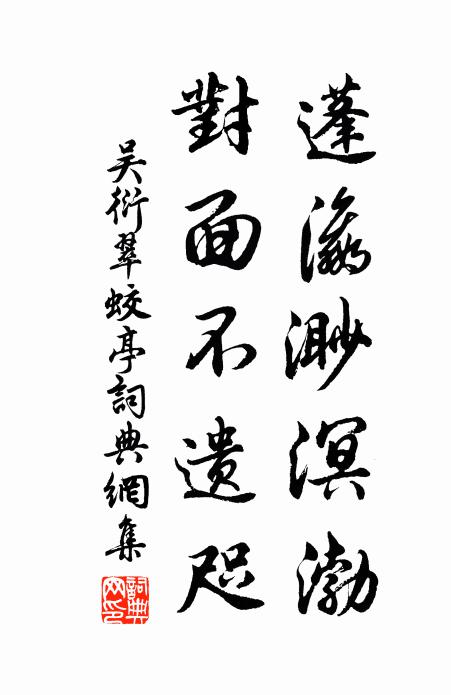 蓬瀛渺溟渤
對面不遺咫
吴衍翠蛟亭詞典網集
詞典网印